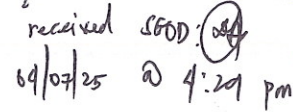 received SEOD:
04/07/25 @ 4:20 pm